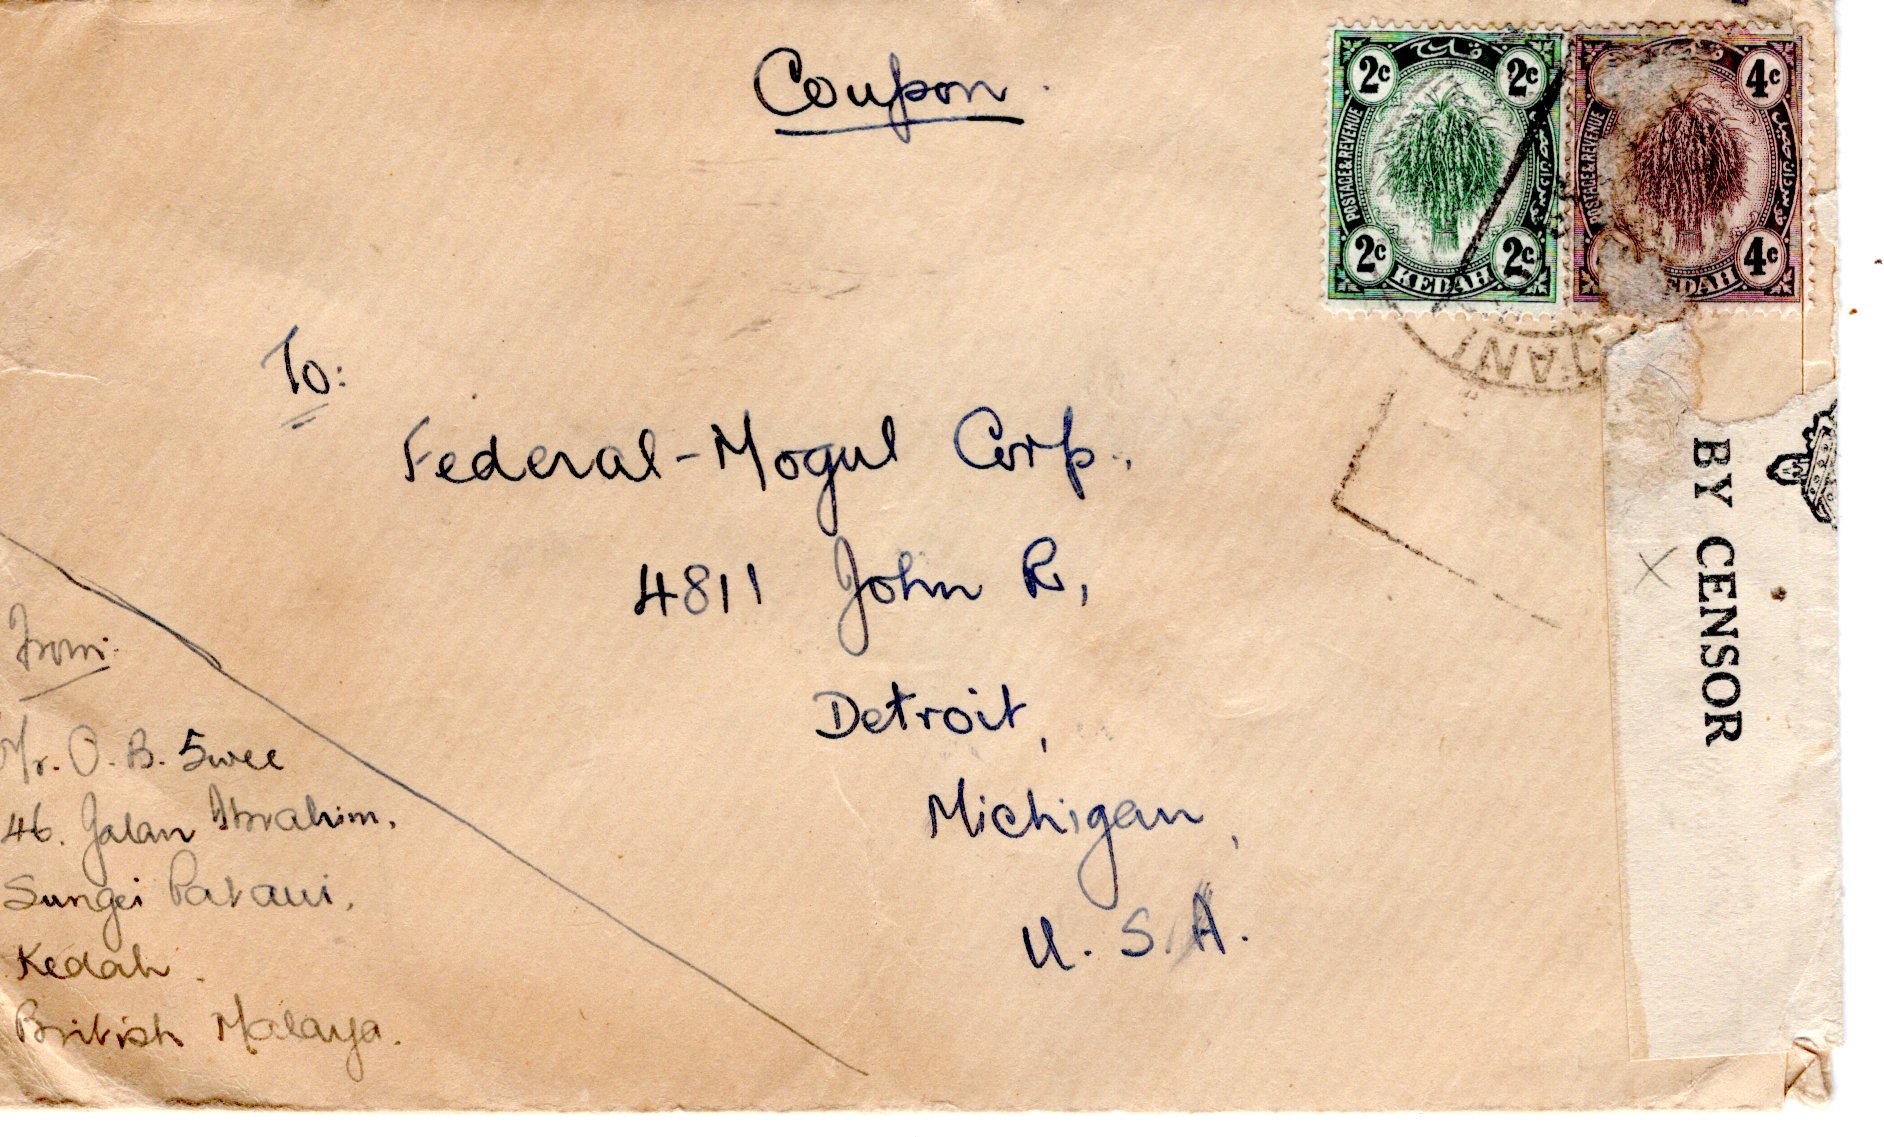 Coupon.
2c 2c
POSTAGE & REVENUE
2c 2c
KEDAH
4c
POSTAGE & REVENUE
4c
EDAH
TANI
BY CENSOR
To:
Federal-Mogul Corp.,
4811 John R,
Detroit,
Michigan,
U. S. A.
From:
Mr. O. B. Swee
46. Jalan Ibrahim.
Sungei Patani,
Kedah.
British Malaya.